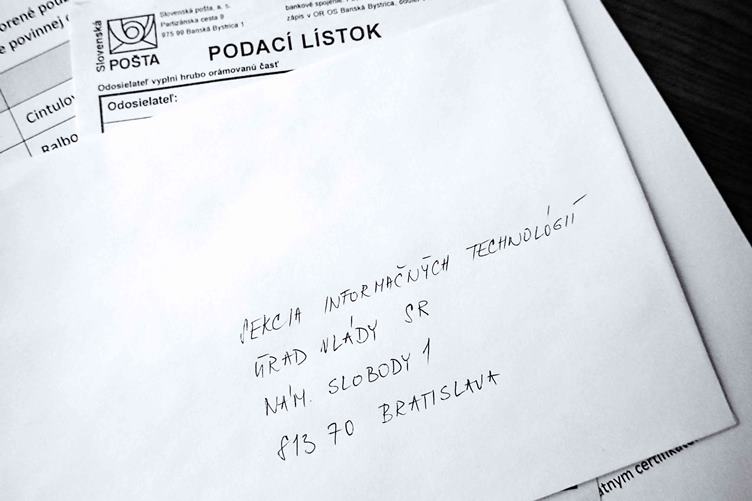 orené
e povinnej
Cintulov
Ralbo
Slovenská
POŠTA
Slovenská pošta, a. s.
Partizánska cesta 9
975 99 Banská Bystrica 1
bankové spojenie
zápis v OR OS Banská Bystrica,
PODACÍ LÍSTOK
Odosielateľ vyplní hrubo orámovanú časť
Odosielateľ:
SEKCIA INFORMAČNÝCH TECHNOLÓGIÍ
ÚRAD VLÁDY SR
NÁM. SLOBODY 1
813 70 BRATISLAVA
atným certifikáto